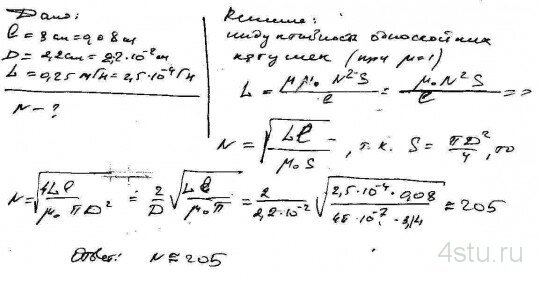 Дано:
ℓ = 8 см = 0,08 м
D = 2,2 см = 2,2·10⁻² м
L = 0,25 мГн = 2,5·10⁻⁴ Гн
N - ?
Решение:
индуктивность однослойных
катушек (при μ=1)
L = μμ₀ N² S / ℓ = μ₀ N² S / ℓ =>
N = √(Lℓ / μ₀ S), т.к. S = πD²/4, то
N = √(4Lℓ / μ₀ π D²) = 2/D √(Lℓ / μ₀ π) = 2 / 2,2·10⁻² √(2,5·10⁻⁴ · 0,08 / 4π·10⁻⁷ · 3,14) ≈ 205
Ответ: N ≈ 205
4stu.ru